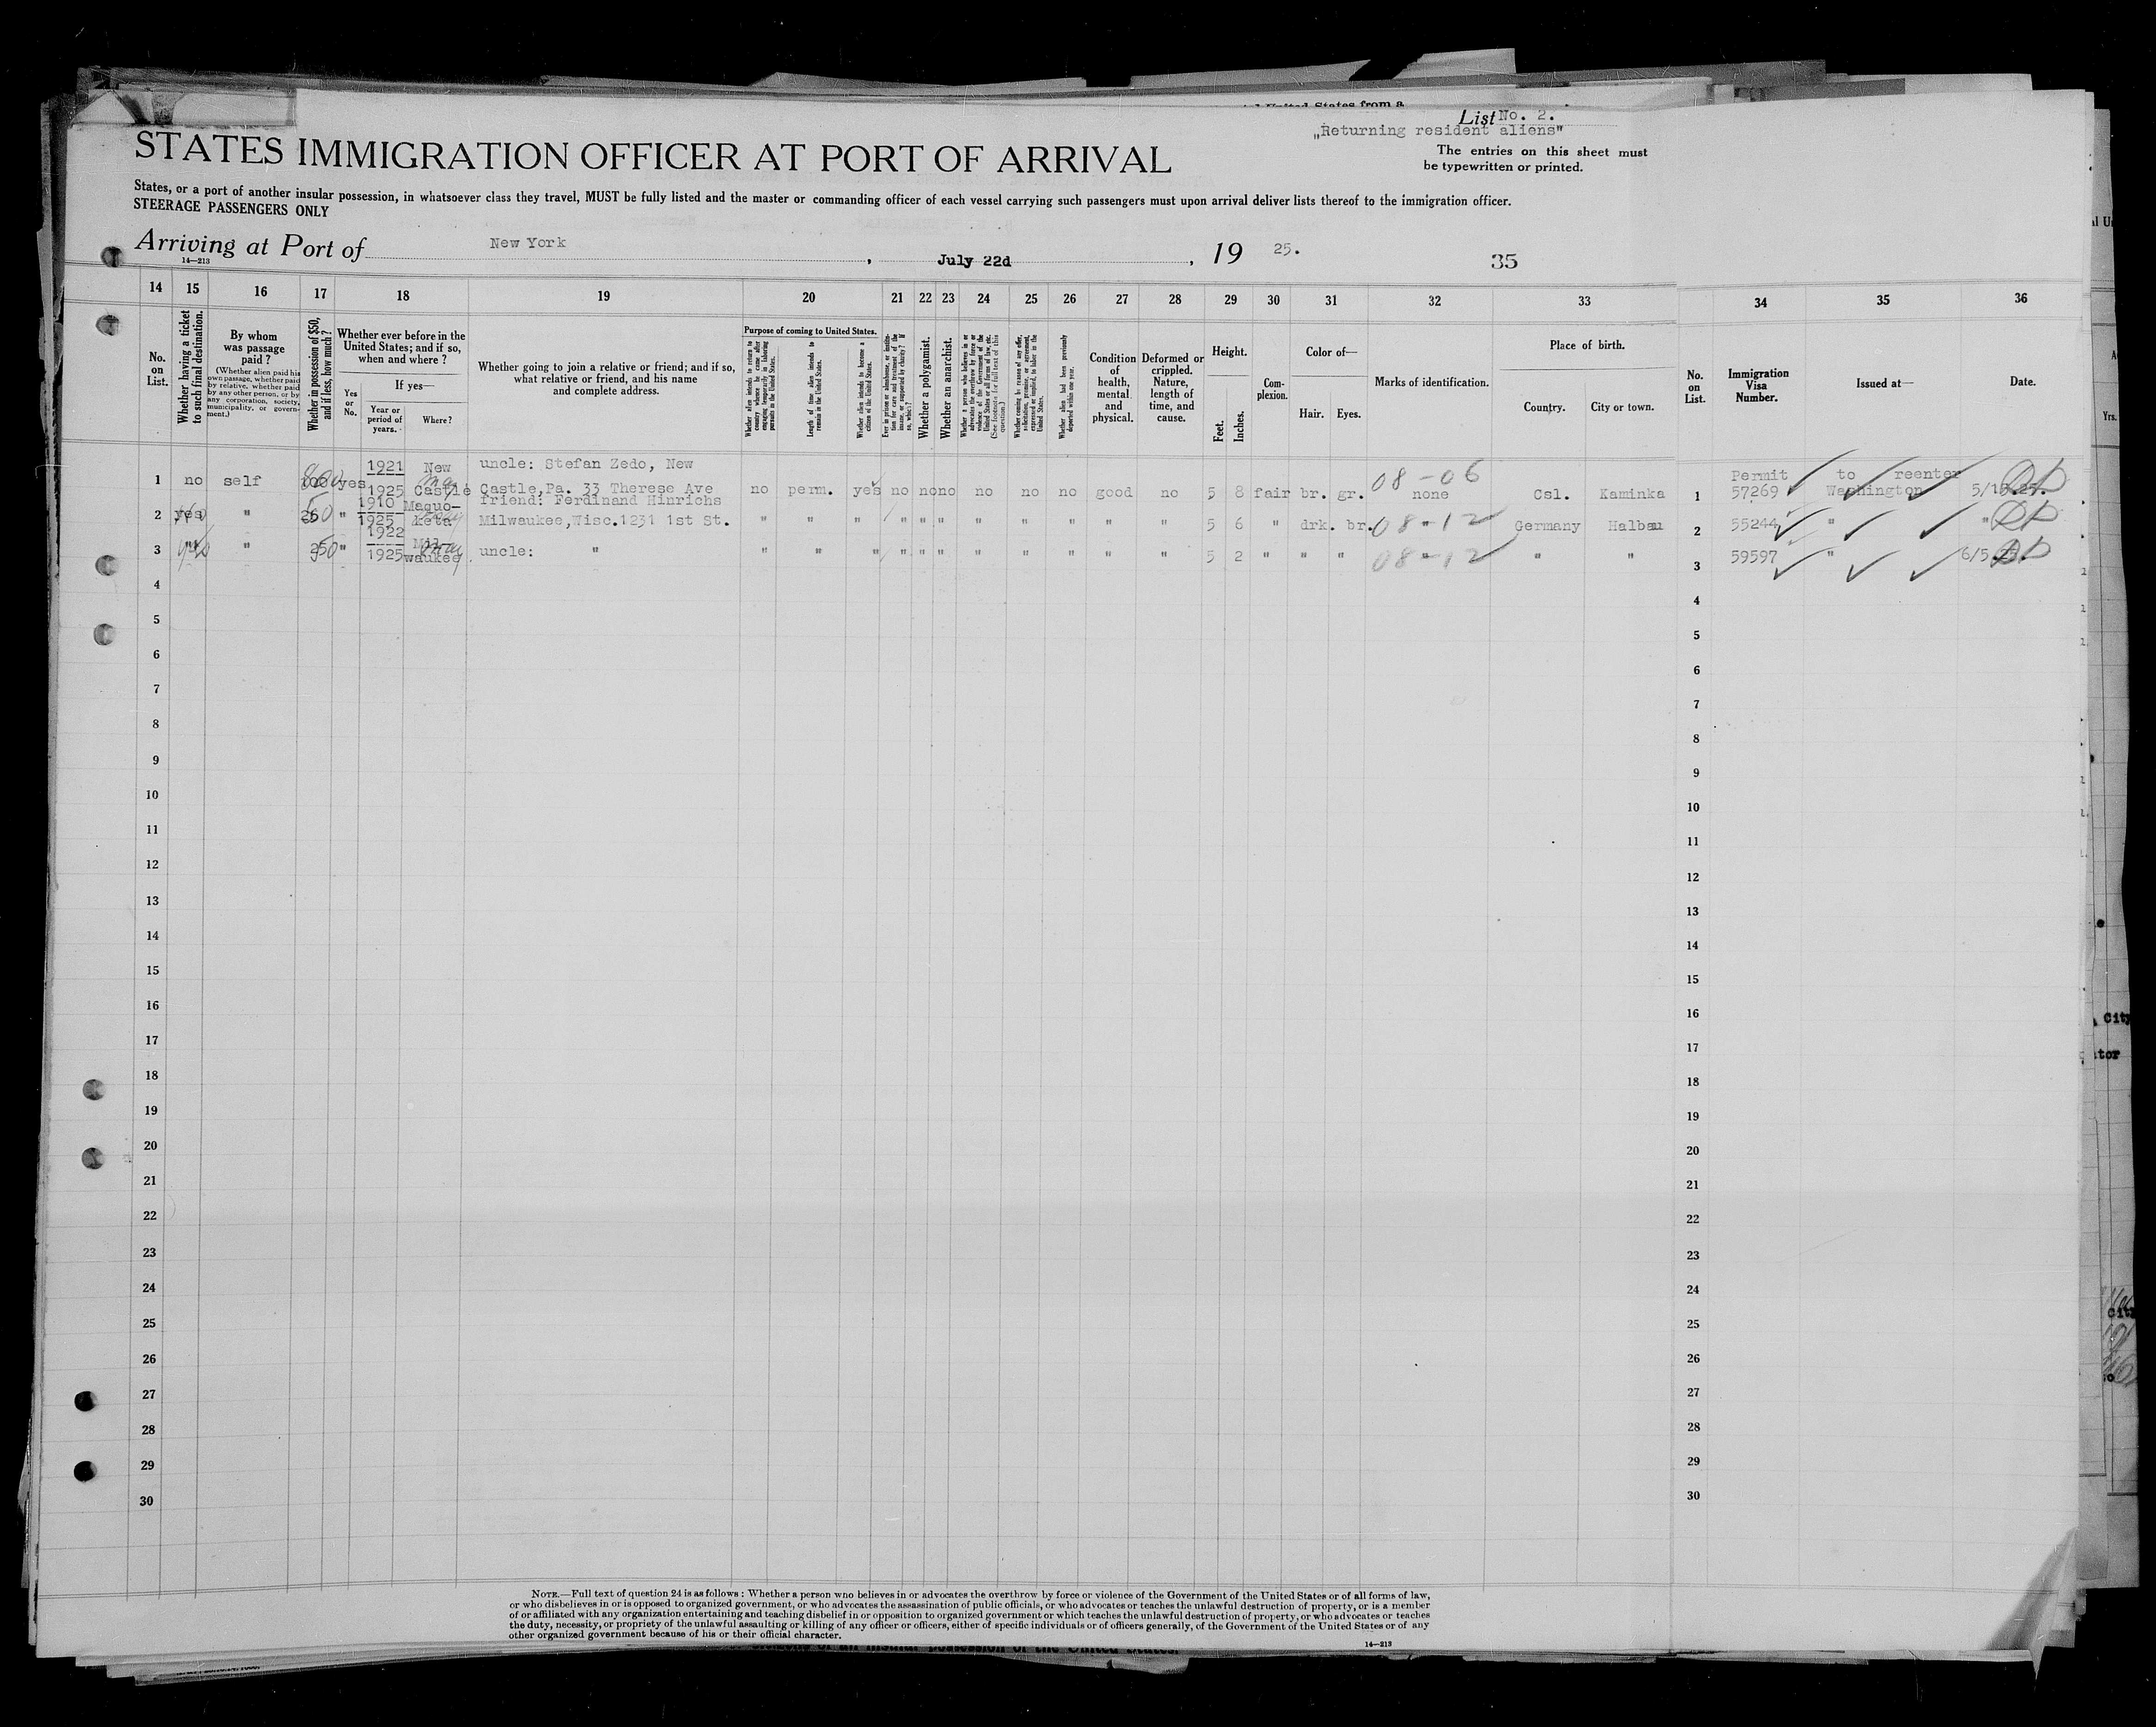 l United States from a
List No. 2.
„Returning resident aliens"
The entries on this sheet must
be typewritten or printed.
STATES IMMIGRATION OFFICER AT PORT OF ARRIVAL
States, or a port of another insular possession, in whatsoever class they travel, MUST be fully listed and the master or commanding officer of each vessel carrying such passengers must upon arrival deliver lists thereof to the immigration officer.
STEERAGE PASSENGERS ONLY
Arriving at Port of New York, July 22d, 19 25.
14—213
35
14 15 16 17 18 19 20 21 22 23 24 25 26 27 28 29 30 31 32 33 34 35 36
No. on List.
Whether having a ticket to such final destination.
By whom was passage paid?
(Whether alien paid his own passage, whether paid by relative, whether paid by any other person, or by any corporation, society, municipality, or government.)
Whether in possession of $50, and if less, how much?
Whether ever before in the United States; and if so, when and where?
Yes or No.
If yes—
Year or period of years.
Where?
Whether going to join a relative or friend; and if so, what relative or friend, and his name and complete address.
Purpose of coming to United States.
Whether alien intends to return to country whence he came after engaging temporarily in laboring pursuits in the United States.
Length of time alien intends to remain in the United States.
Whether alien intends to become a citizen of the United States.
Ever in prison or almshouse, or institution for care and treatment of the insane, or supported by charity? If so, which?
Whether a polygamist.
Whether an anarchist.
Whether a person who believes in or advocates the overthrow by force or violence of the Government of the United States or all forms of law, etc. (See footnote for full text of this question.)
Whether coming by reason of any offer, solicitation, promise, or agreement, expressed or implied, to labor in the United States.
Whether alien had been previously deported within one year.
Condition of health, mental and physical.
Deformed or crippled. Nature, length of time, and cause.
Height.
Feet. Inches.
Complexion.
Color of—
Hair. Eyes.
Marks of identification.
Place of birth.
Country. City or town.
No. on List.
Immigration Visa Number.
Issued at—
Date.
1921 New uncle: Stefan Zedo, New 08-06 Permit to reenter
1 no self yes 1925 Castle Castle,Pa. 33 Therese Ave no perm. yes no no no no no no good no 5 8 fair br. gr. none Csl. Kaminka 1 57269 Washington
1910 Maquo- friend: Ferdinand Hinrichs
2 yes " 50 " 1925 keta Milwaukee,Wisc.1231 1st St. " " " " " " " " " " " 5 6 " drk. br. 08-12 " Germany Halbau 2 55244 " "
1922 Mil-
3 " " 50 " 1925 waukee. uncle: " " " " " " " " " " " " 5 2 " " " 08-12 " " " 3 59597 " 6/5.25.
4 4
5 5
6 6
7 7
8 8
9 9
10 10
11 11
12 12
13 13
14 14
15 15
16 16
17 17
18 18
19 19
20 20
21 21
22 22
23 23
24 24
25 25
26 26
27 27
28 28
29 29
30 30
NOTE.—Full text of question 24 is as follows: Whether a person who believes in or advocates the overthrow by force or violence of the Government of the United States or of all forms of law,
or who disbelieves in or is opposed to organized government, or who advocates the assassination of public officials, or who advocates or teaches the unlawful destruction of property, or is a member
of or affiliated with any organization entertaining and teaching disbelief in or opposition to organized government or which teaches the unlawful destruction of property, or who advocates or teaches
the duty, necessity, or propriety of the unlawful assaulting or killing of any officer or officers, either of specific individuals or of officers generally, of the Government of the United States or of any
other organized government because of his or their official character.
14—213